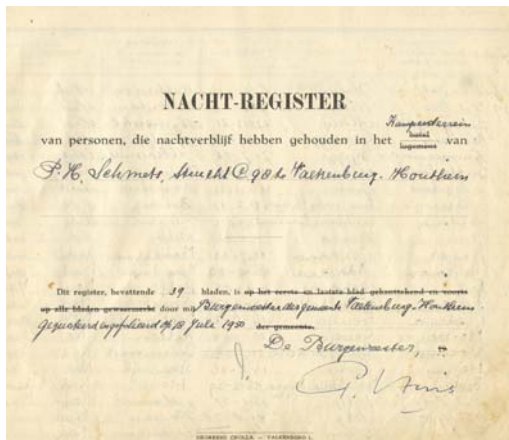 NACHT-REGISTER
Kampeerterrein
hotel
van personen, die nachtverblijf hebben gehouden in het logement van
P. H. Schmets, Strucht C 98 te Valkenburg-Houthem
Dit register, bevattende 39 bladen, is op het eerste en laatste blad gekanttekend en voorts
op alle bladen gewaarmerkt door mij Burgemeester der gemeente Valkenburg-Houthem
gequoteerd en gefolieerd op 13 Juli 1950 der gemeente.
De Burgemeester,
DRUKKERIJ CROLLA — VALKENBURG L.